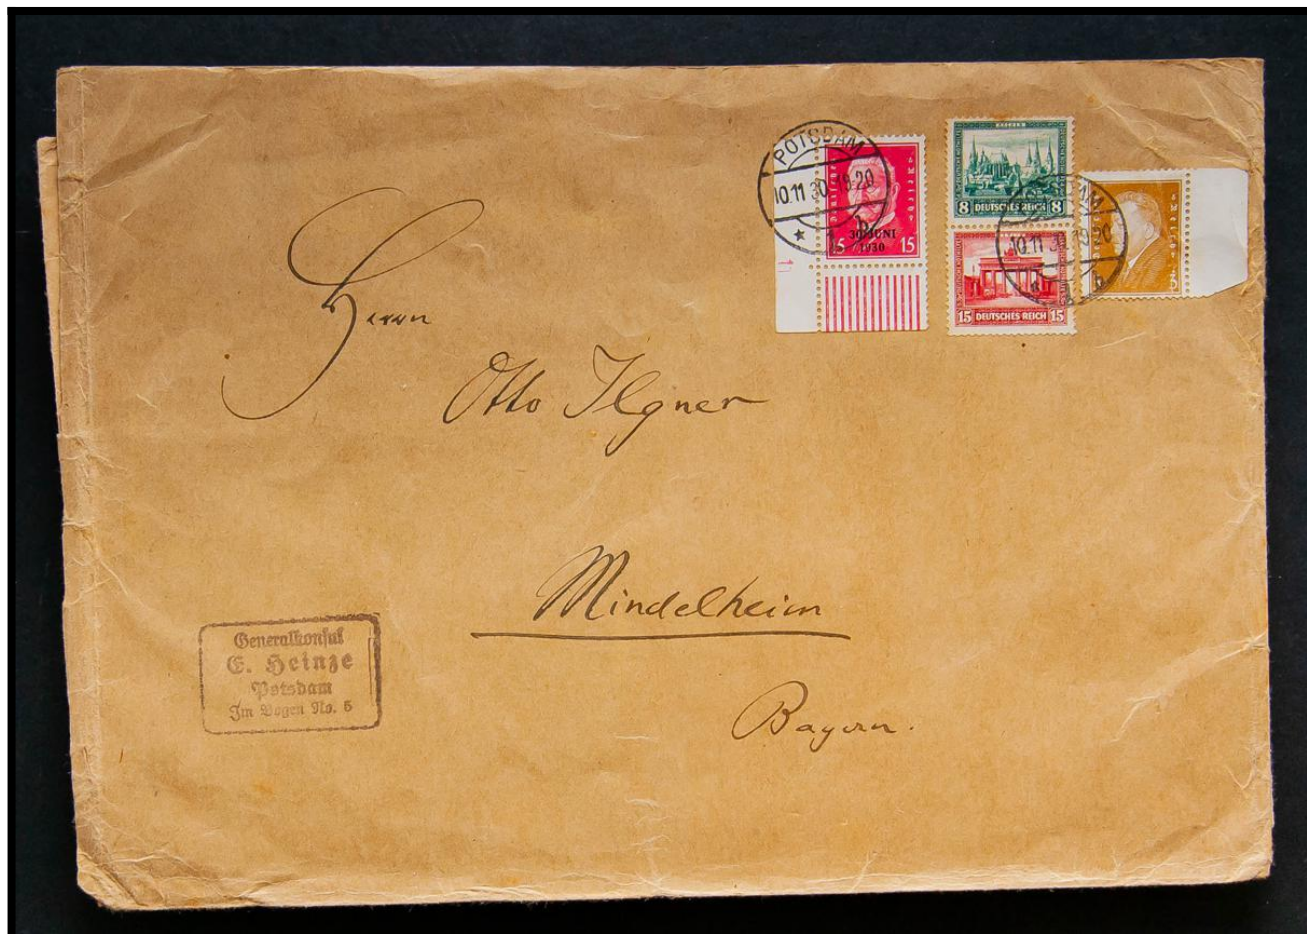 POTSDAM
10.11 30 19-20
b
15 15
30.JUNI
1930
AACHEN
8 DEUTSCHES REICH 8
15 DEUTSCHES REICH 15
10.11 19-20
b
3
Herrn
Otto Ilgner
Mindelheim
Bayern.
Generalkonsul
E. Heinze
Potsdam
Im Bogen No. 6